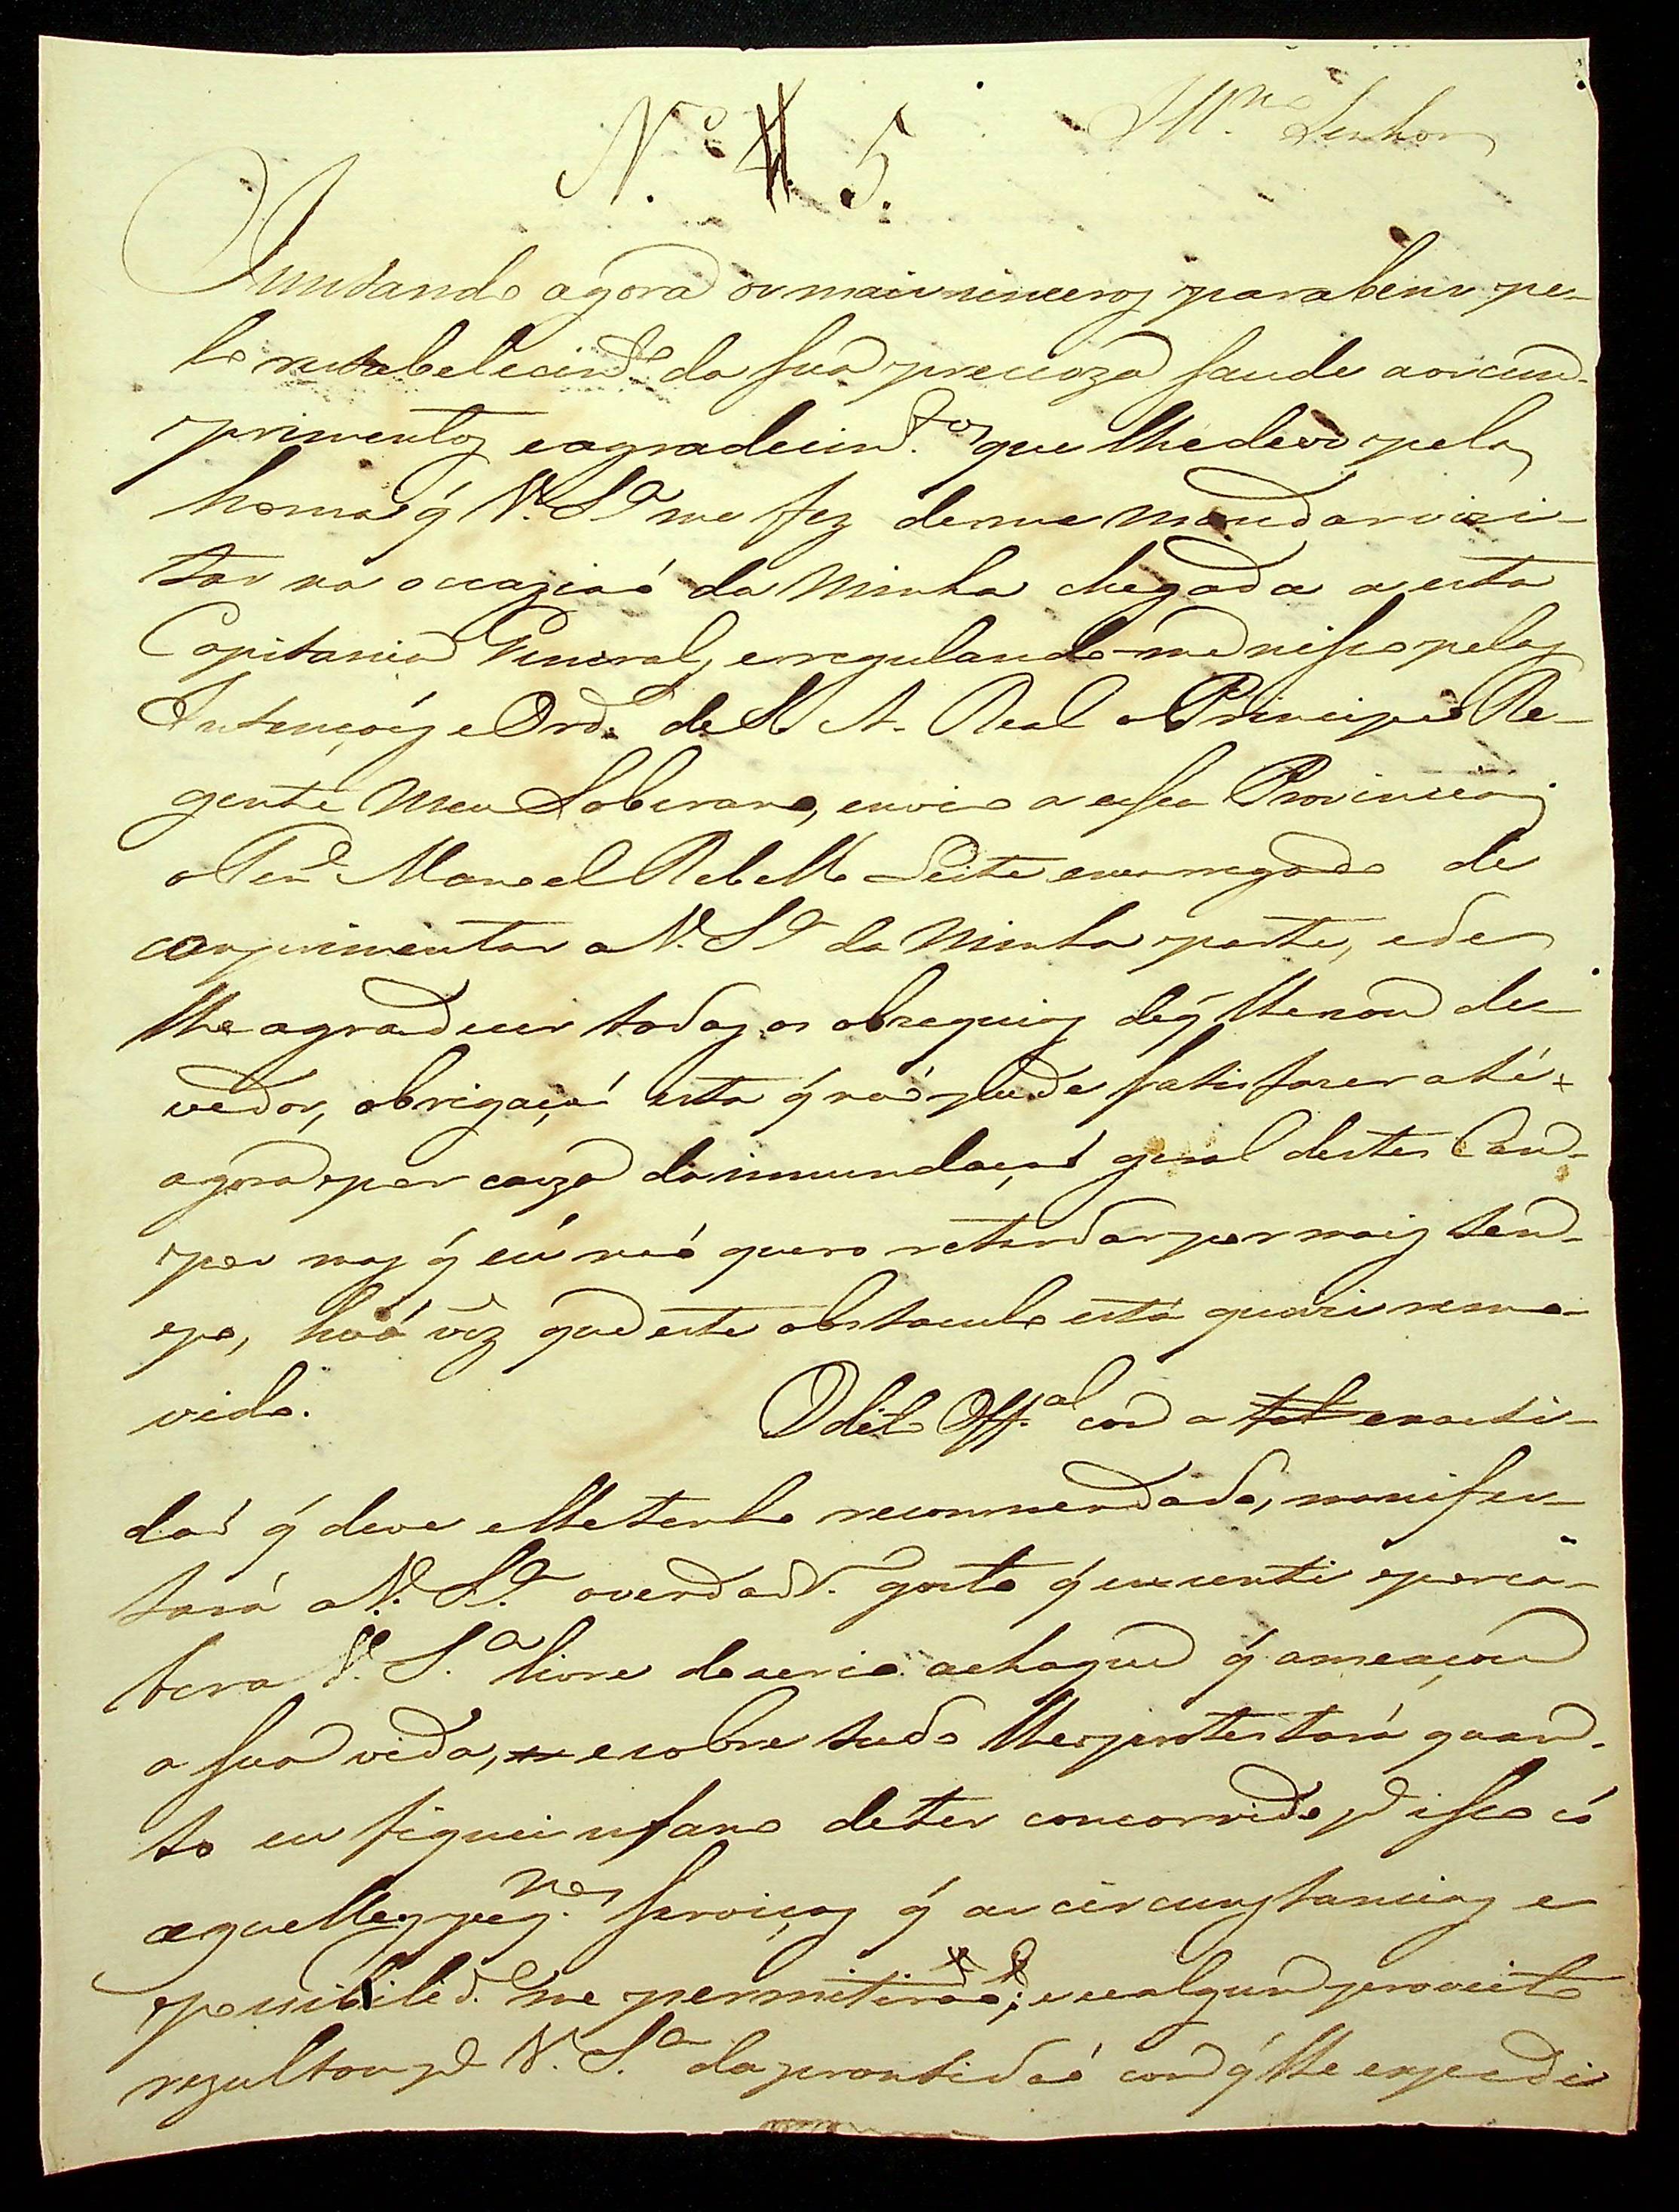 Illmo Senhor
N.º 4. 5.
Juntando agora os mais sinceros parabens pe-
lo restabelecimto da sua precioza saude aos cum-
primentos e agradecimtos que lhe devo pela
honra q̃ V. Sa me fez de me mandar vizi-
tar na occaziaõ da Minha chegada a esta
Capitania General, e regulando-me nisso pelas
Intençoẽs e Ord.s de S. A. Real o Principe Re-
gente Meu Soberano, envio a essa Provincia
o Tene Manoel Rebello Leite encarregado de
comprimentar a V. Sa da Minha parte, e de
lhe agradecer todos os obzequios de q̃ lhe sou de-
vedor, obrigaçaõ esta q̃ naõ pude satisfazer até
agora por cauza da innundaçaõ geral destes Cam-
pos mas q̃ eu naõ quero retardar por mais tem-
po, huã vez que este obstaculo está quazi remo-
vido. O dito Offal com a tal exacti-
daõ q̃ deve e lhe tenho recommendado, manifes-
tará a V. Sa o verdadr.o gosto q̃ eu senti por sa-
ber a V. S.a livre do serio achaque q̃ ameaçou
a sua vida, e sobre tudo lhe protestará quan-
to eu fiquei ufano de ter concorrido pa isso có
aquelles peq.nos serviços q̃ as circunstancias e
possibilid.e me permitiraõ; e se algum proveito
rezultou pa V. S.a da promtidaõ com q̃ lhe expedi